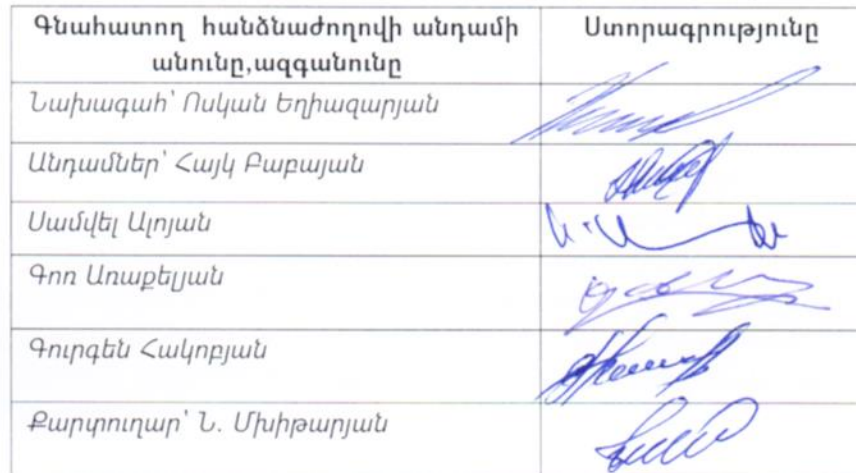 Գնահատող հանձնաժողովի անդամի Ստորագրությունը
անունը,ազգանունը
Նախագահ՝ Ոսկան Եղիազարյան
Անդամներ՝ Հայկ Բաբայան
Սամվել Ալոյան
Գոռ Առաքելյան
Գուրգեն Հակոբյան
Քարտուղար՝ Ն. Մխիթարյան